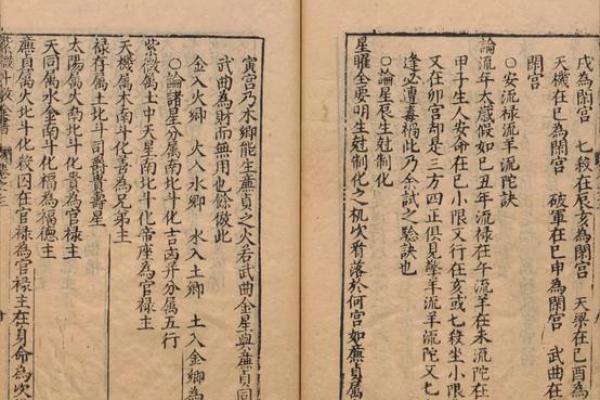 戌為閑宮　七殺在辰亥為閑宮　天梁在巳酉為
天機在巳為閑宮　破軍在巳申為閑宮　武曲在
閑宮
○安流祿流羊流陀訣
論流年太歲假如己丑年流祿在午流羊在未流陀在
甲子生人安命在巳小限又行在亥或七殺坐小限
又在卯宮却是三方四正俱見擎羊流羊流陀又七
逢必遭毒禍此乃余試之驗訣也
○論星辰生尅制化
星曜全要明生尅制化之机次看落於何宮如廉貞屬
寅宮乃木鄉能生廉貞之火若武曲金星與廉貞同
武曲為財而無用也餘倣此
金入火鄉　火入水鄉　水入土鄉　土入金鄉為
○論諸星分屬南北斗化吉凶并分屬五行
紫微屬土中天星南北斗化帝座為官祿主
天機屬木南斗化善為兄弟主
祿存屬土北斗司爵貴壽星
太陽屬火南北斗化貴為官祿主
天同屬水金南斗化福為福德主
廉貞屬火北斗化殺囚在官祿為官祿主在身命為次